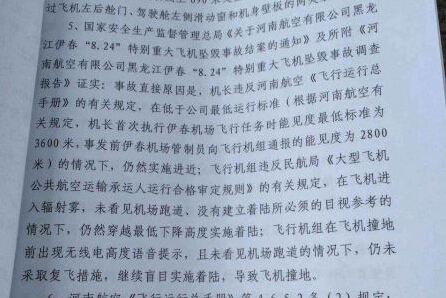 过飞机左后舱门、驾驶舱左侧滑动窗和机身壁板的两处
5、国家安全生产监督管理总局《关于河南航空有限公司黑龙
江伊春“8.24”特别重大飞机坠毁事故结案的通知》及所附《河
南航空有限公司黑龙江伊春“8.24”特别重大飞机坠毁事故调查
报告》证实：事故直接原因是，机长违反河南航空《飞行运行总
手册》的有关规定，在低于公司最低运行标准（根据河南航空有
关规定，机长首次执行伊春机场飞行任务时能见度最低标准为
3600米，事发前伊春机场管制员向飞行机组通报的能见度为2800
米）的情况下，仍然实施进近；飞行机组违反民航局《大型飞机
公共航空运输承运人运行合格审定规则》的有关规定，在飞机进
入辐射雾，未看见机场跑道、没有建立着陆所必须的目视参考的
情况下，仍然穿越最低下降高度实施着陆；飞行机组在飞机撞地
前出现无线电高度语音提示，且未看见机场跑道的情况下，仍未
采取复飞措施，继续盲目实施着陆，导致飞机撞地。
6、河南航空《飞行运行总手册》第4.6.5.2条（2）规定，